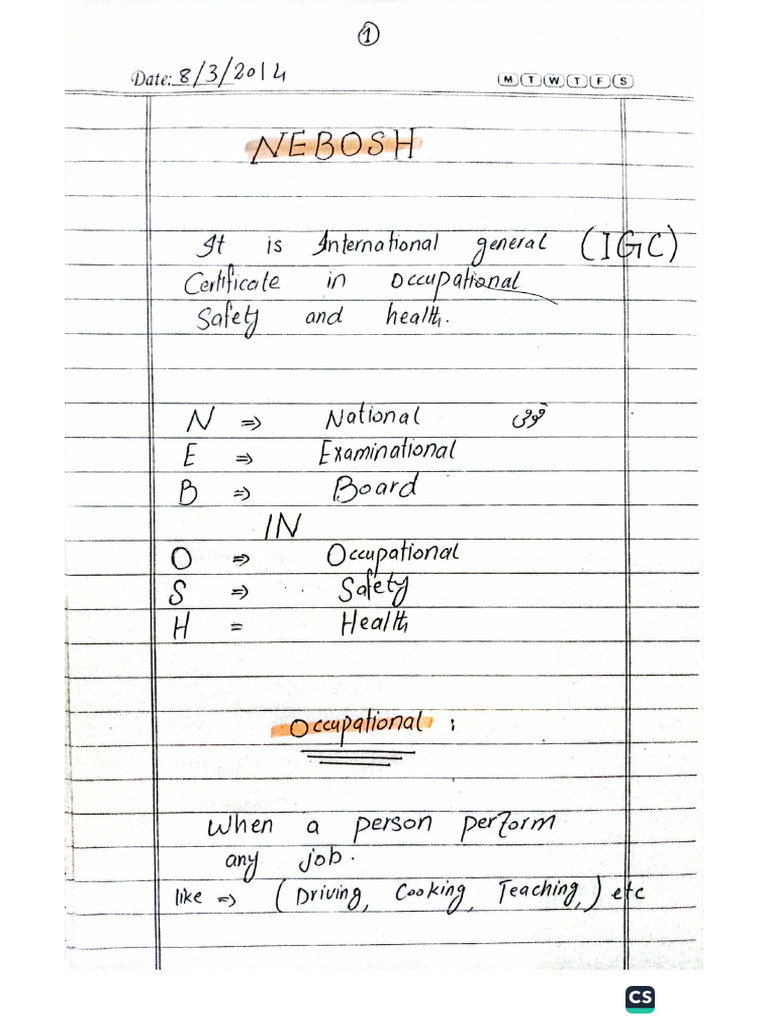 ①
Date: 8/3/2014 M T W T F S
NEBOSH
It is International general (IGC)
Certificate in Occupational
Safety and health.
N => National قومی
E => Examinational
B => Board
IN
O => Occupational
S => Safety
H = Health
Occupational :
When a person perform
any job.
like => (Driving, Cooking, Teaching,) etc
CS